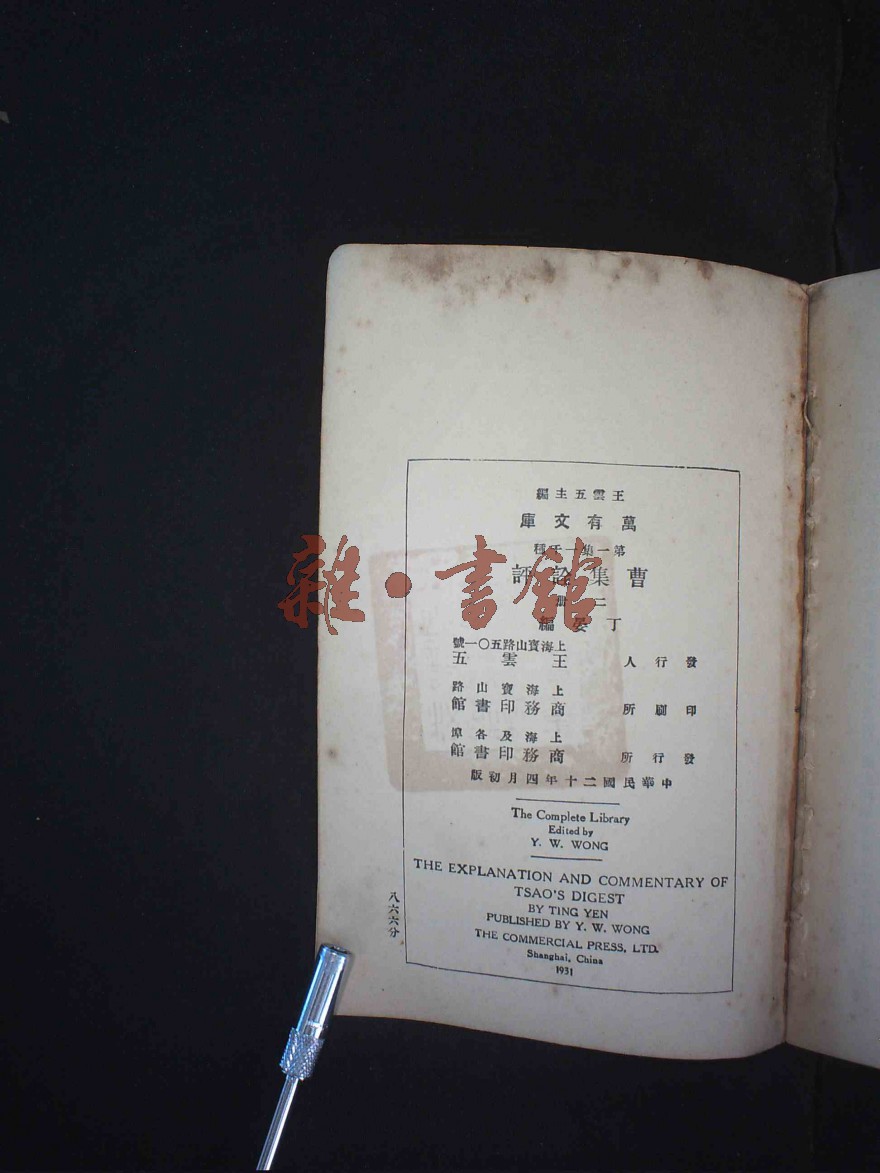 王雲五主編
萬有文庫
第一集一千種
曹集詮評
二冊
丁晏編
上海寶山路五〇一號
發行人 王雲五
上海寶山路
印刷所 商務印書館
上海及各埠
發行所 商務印書館
中華民國二十年四月初版
The Complete Library
Edited by
Y. W. WONG
THE EXPLANATION AND COMMENTARY OF
TSAO'S DIGEST
BY TING YEN
PUBLISHED BY Y. W. WONG
THE COMMERCIAL PRESS, LTD.
Shanghai, China
1931
八六六分
雜·書館